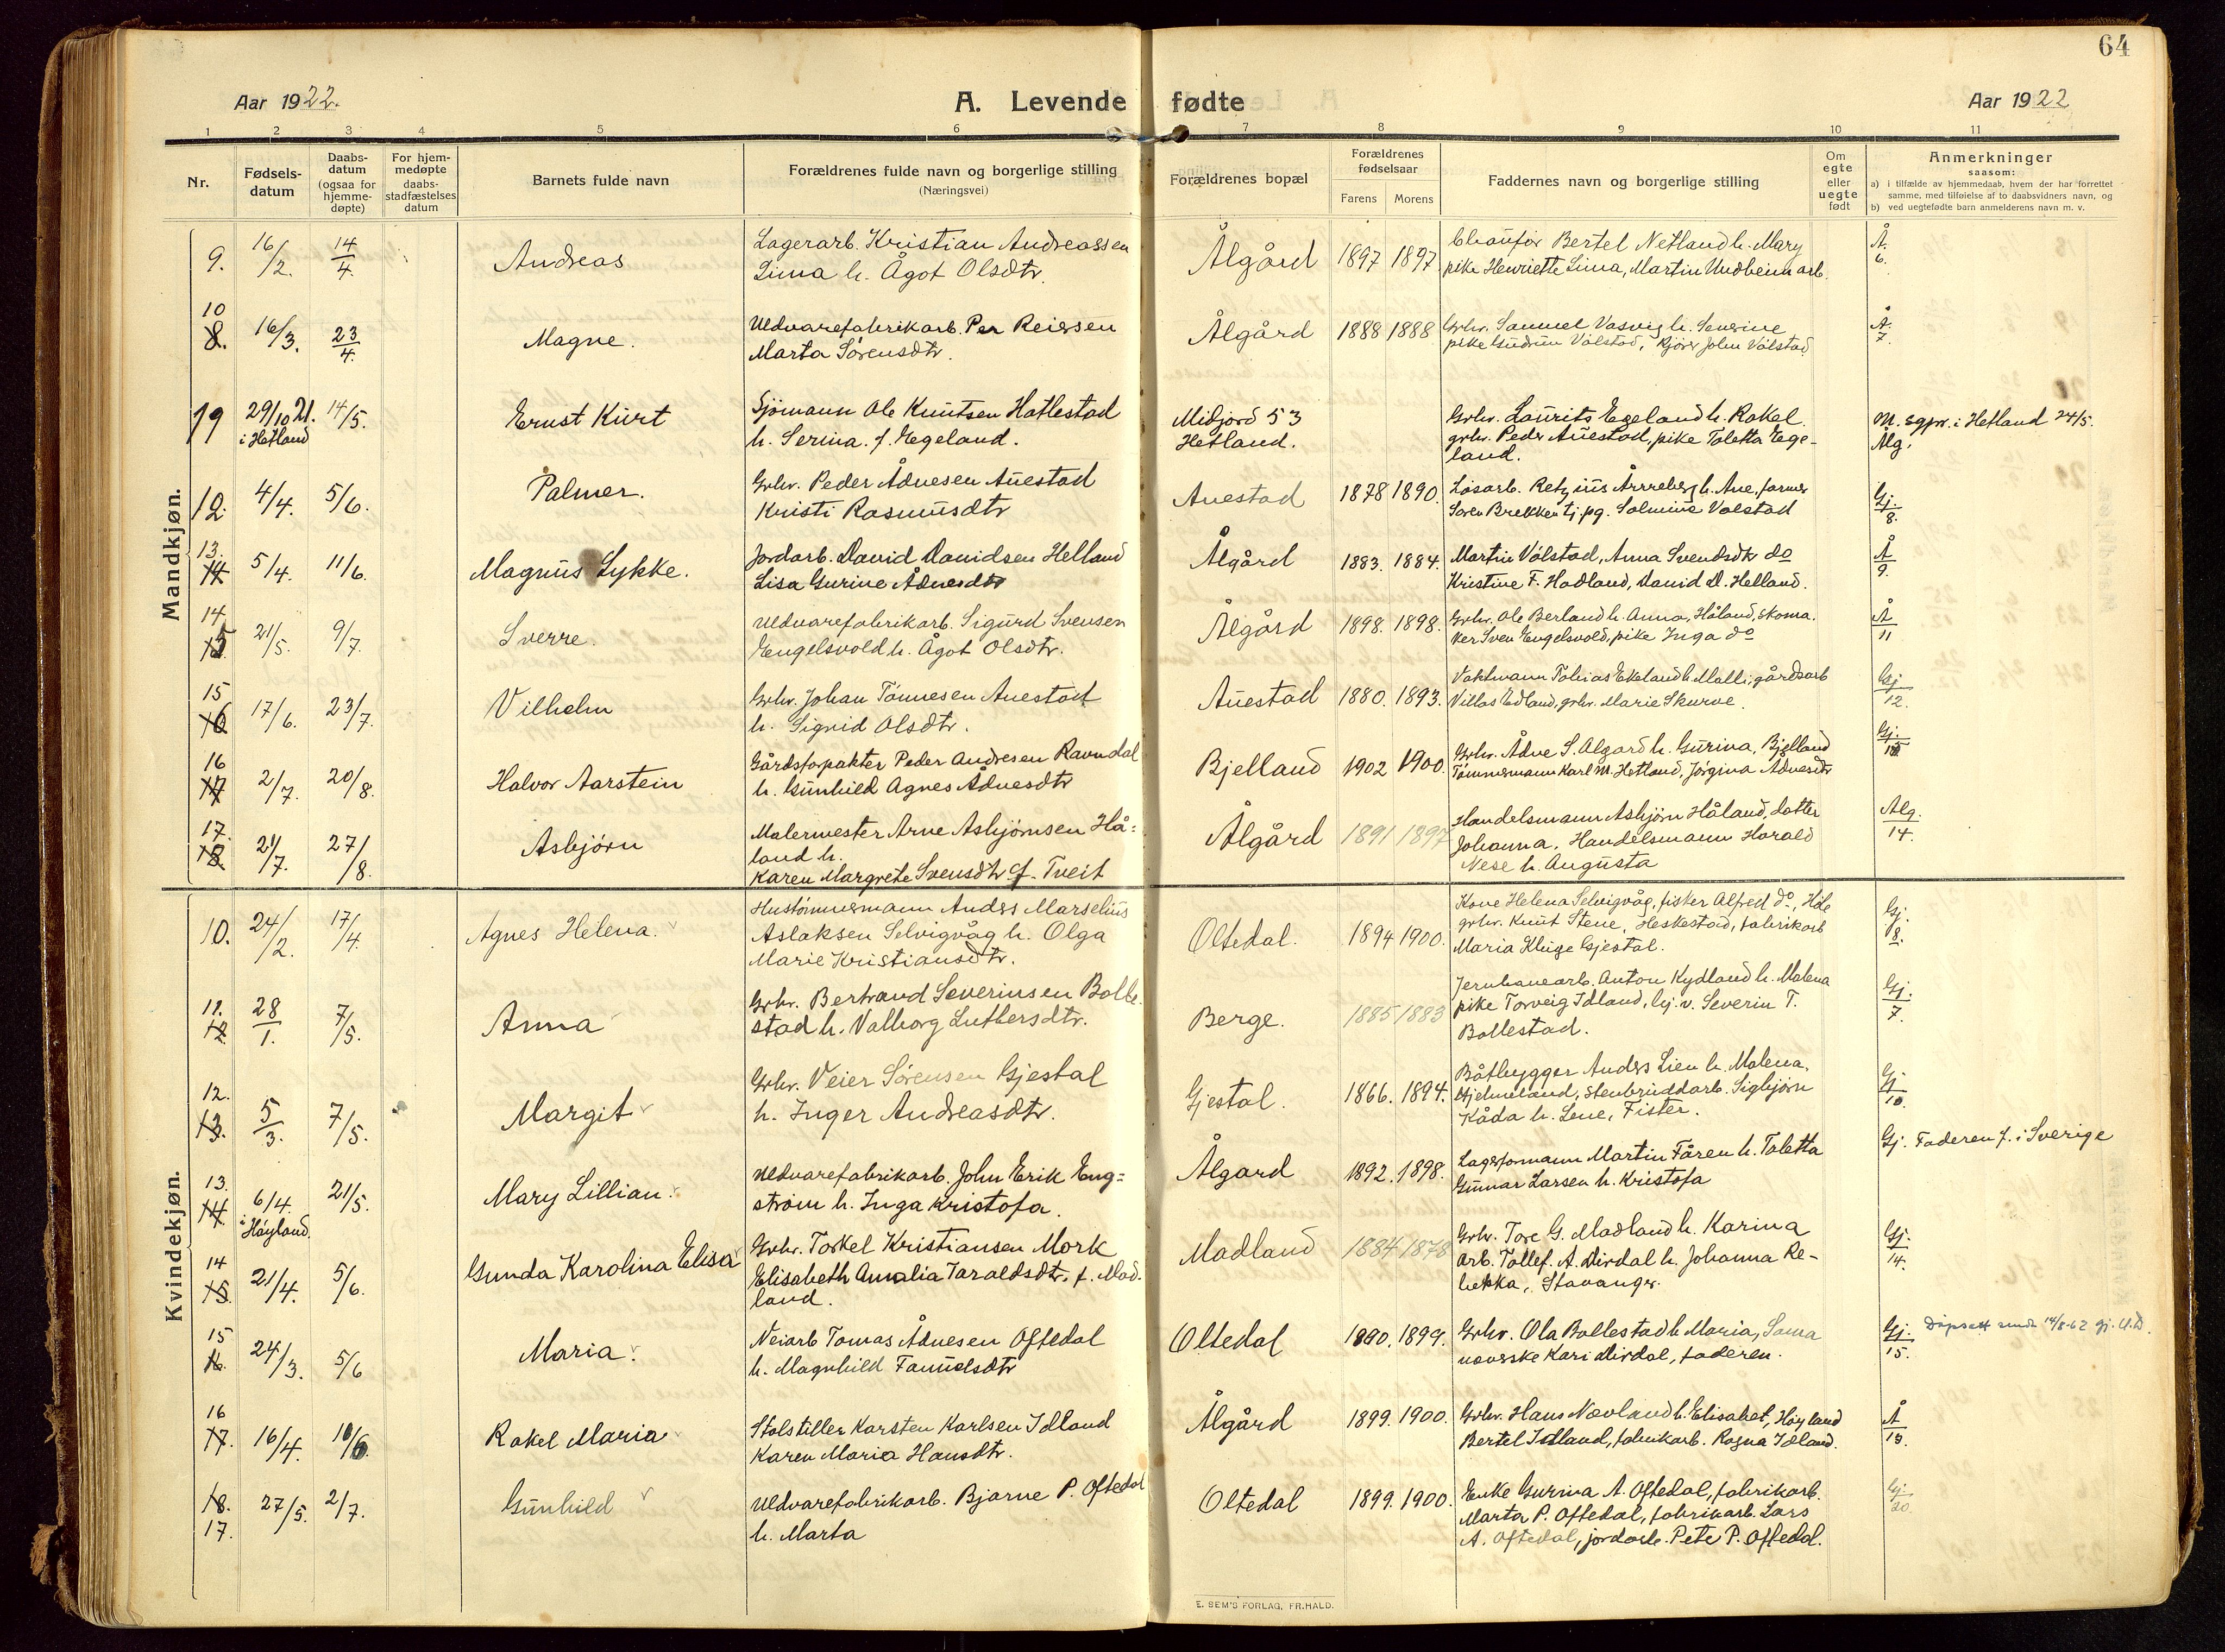 64
Aar 1922.
A. Levende fødte
Aar 1922
1 2 3 4 5 6 7 8 9 10 11
Nr.
Fødsels-
datum
Daabs-
datum
(ogsaa for
hjemme-
døpte)
For hjem-
medøpte
daabs-
stadfæstelses
datum
Barnets fulde navn
Forældrenes fulde navn og borgerlige stilling
(Næringsvei)
Forældrenes bopæl
Forældrenes
fødselsaar
Farens Morens
Faddernes navn og borgerlige stilling
Om
egte
eller
uegte
født
Anmerkninger
saasom:
a) i tilfælde av hjemmedaab, hvem der har forrettet
samme, med tilføielse af to daabsvidners navn, og
b) ved uegtefødte barn anmelderens navn m. v.
Mandkjøn.
9. 16/2. 14/4. Andreas
Lagerarb. Kristian Andreassen
Lima h. Ågot Olsdtr.
Ålgård 1897 1897
Chauför Bertel Netland h. Mary
pike Henriette Lima, Martin Undheim arb.
Å. 6.
10
8. 16/3. 23/4. Magne.
Uldvarefabrikarb. Per Reiersen
Marta Sörensdtr.
Ålgård 1888 1888
Grbr. Samuel Vasvig h. Severine
pike Gudrun Vålstad, kjörer John Vålstad
Å. 7.
19 29/10 21. 14/5. Ernst Kurt
i Hetland
Sjömann Ole Knutsen Hatlestad
h. Serina. f. Egeland.
Midjord 53
Hetland.
Grbr. Laurits Egeland h. Rakel
grbr. Peder Auestad, pike Toletta Ege-
land.
M. sgpr. i Hetland 24/5.
Ålg.
12. 4/4. 5/6. Palmer.
Grbr. Peder Ådnesen Auestad
Kristi Rasmusdtr
Auestad 1878 1890.
Lösarb. Retzius Årreberg h. Ane, farmer
Soren Brekken tj. pg. Solmine Valestad
Gj. 8.
13.
14 5/4. 11/6. Magnus Lykke.
Jordarb. David Davidsen Helland
Lisa Gurine Ådnesdtr
Ålgård 1883. 1884.
Martin Vålstad, Anna Svendsdtr do
Kristine F. Hadland, David D. Helland.
Å 9.
14
15 21/5. 9/7. Sverre.
Uldvarefabrikarb. Sigurd Svensen
Engelsvold h. Ågot Olsdtr.
Ålgård 1898. 1898.
Grbr. Ole Berland h. Anna, Håland, skoma.
ker Sven Engelsvold, pike Inga do
Å 11
15
16 17/6. 23/7. Vilhelm
Grbr. Johan Tönnesen Auestad
h. Sigrid Olsdtr.
Auestad 1880. 1893.
Vaktmann Tobias Ekeland h. Malli, gårdsarb
Villas Edland, grbr. Marie Skurve.
Gj 12.
16
17 2/7. 20/8. Halvor Aarstein
Gårdsforpakter Peder Andresen Ravndal
h. Gunhild Agnes Ådnesdtr
Bjelland 1902 1900.
Grbr. Ådne S. Algard h. Gurina, Bjelland
Tömmermann Karl M. Hetland, Jörgina Adnesdtr
Gj.
17.
18 21/7. 27/8. Asbjörn
Malermester Arne Asbjörnsen Hå=
land h.
Karen Margrete Svensdtr f. Tveit
Ålgård 1891 1897
Handelsmann Asbjörn Håland, datter
Johanna. Handelsmann Harald
Nese h. Augusta
Ålg. 14.
Kvindekjøn.
10. 24/2. 17/4. Agnes Helena.
Hustömmermann Anders Marselius
Aslaksen Selvigvåg h. Olga
Marie Kristiansdtr.
Oltedal. 1894 1900.
Kone Helena Selvigvåg, fisker Alfred do, Höle
grbr. Knut Stene, Heskestad, fabrikarb
Maria Kluge Gjestal.
Gj. 8.
11.
12 28/1. 7/5. Anna
Grbr. Bertrand Severinsen Bolle-
stad h. Valborg Luthersdtr.
Berge. 1885 1883
Jernbanearb. Anton Kydland h. Malena
pike Torveig Idland, bj. v. Severin T.
Bollestad.
Gj. 7.
12.
13. 5/3. 7/5. Margit
Grbr. Veier Sörensen Gjestal
h. Inger Andreasdtr.
Gjestal. 1866. 1894.
Båtbygger Anders Lien h. Malena.
Hjelmeland, stenbruddarb. Sigbjörn
Kåda h. Lene, Fister.
Gj 10.
13.
14. 6/4. 21/5. Mary Lillian.
i Höyland.
Uldvarefabrikarb. John Erik Eng=
ström h. Inga Kristofa.
Ålgard 1892. 1898.
Lagerformann Martin Fåren h. Taletta
Gunnar Larsen h. Kristofa
Gj. Faderen f. i Sverige
14
15. 21/4. 5/6. Gunda Karolina Elisa
Grbr. Torkel Kristiansen Mork
Elisabeth Amalia Taraldsdtr. f. Mad-
land.
Madland 1884 1878
Grbr. Tore G. Madland h. Karina
arb. Tollef. A. Dirdal h. Johanna Re-
bekka, Stavanger.
Gj. 14.
15
16. 24/3. 5/6 Maria.
Veiarb Tomas Ådnesen Oftedal
h. Magnhild Samuelsdtr
Oltedal 1890. 1899.
Grbr. Ola Bollestad h. Maria, Sama
uverske Kari Dirdal, faderen.
Gj. 15. Dåpsatt sendt 14/8-62 gj. U.D.
16
17. 16/4. 18/6. Rakel Maria
Stolstiller Karsten Karlsen Idland
Karen Maria Hansdtr.
Ålgård 1899. 1900.
Grbr. Hans Nævland h. Elisabet, Höyland
Bertel Idland, fabrikarb. Ragna Idland.
Å 18.
18. 27/5. 2/7. Gunhild
17.
Uldvarefabrikarb. Bjarne P. Oftedal
h. Marta
Oltedal 1899. 1900.
Enke Gurina A. Oftedal, fabrikarb.
Marta P. Oftedal, fabrikarb. Lars
A. Oftedal, jordarb. Pete P. Oftedal.
Gj. 20
E. SEM'S FORLAG, FR.HALD.